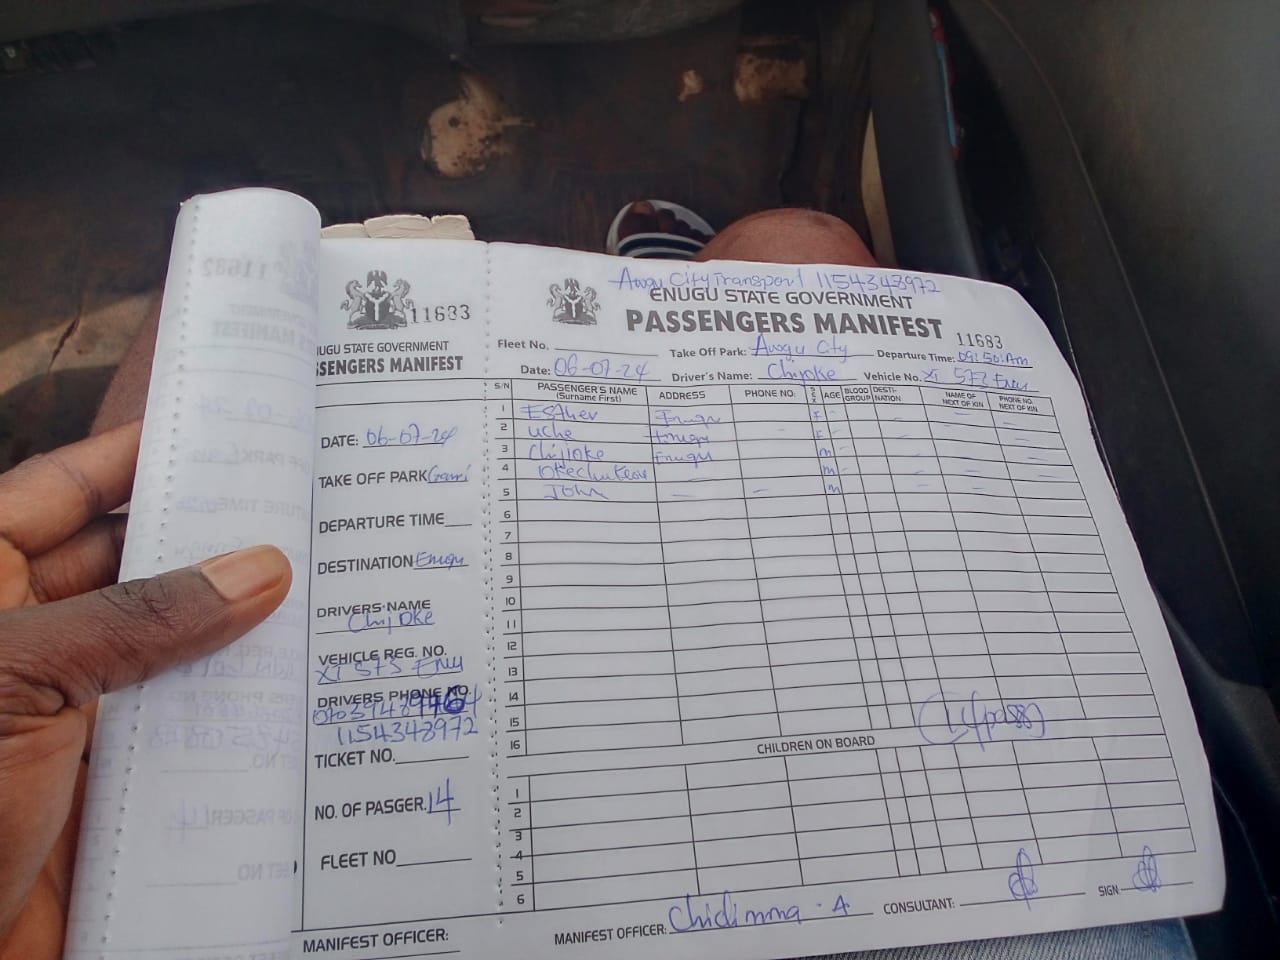 11683
ENUGU STATE GOVERNMENT
PASSENGERS MANIFEST
DATE: 06-07-24
TAKE OFF PARK
DEPARTURE TIME
DESTINATION Enugu
DRIVERS NAME
Chijioke
VEHICLE REG. NO.
XI 573 Enu
DRIVERS PHONE NO.
1154348972
TICKET NO.
NO. OF PASGER. 14
FLEET NO
MANIFEST OFFICER:
Awgu City Transport 1154348972
ENUGU STATE GOVERNMENT
PASSENGERS MANIFEST 11683
Fleet No. Take Off Park: Awgu City Departure Time: 09:50:Am
Date: 06-07-24 Driver's Name: Chijioke Vehicle No. XI 573 Enu
S/N PASSENGER'S NAME (Surname First) ADDRESS PHONE NO: SEX AGE BLOOD GROUP DESTI-NATION NAME OF NEXT OF KIN PHONE NO. NEXT OF KIN
1 Esther Enugu F
2 Uche Enugu F
3 Chijioke Enugu m
4 Okechukwu m
5 John m
6
7
8
9
10
11
12
13
14
15
16
(14 pass)
CHILDREN ON BOARD
1
2
3
4
5
6
MANIFEST OFFICER: Chidimma . A CONSULTANT: SIGN